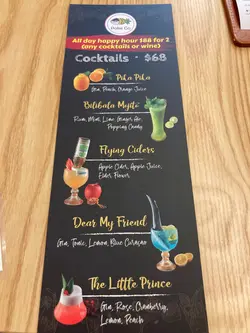 All day happy hour $88 for 2
(any cocktails or wine)
Cocktails · $68
Pika Pika
Gin, Peach, Orange Juice
Bilibala Mojito
Rum, Mint, Lime, Ginger Air,
Popping Candy
Flying Ciders
Apple Cider, Apple Juice,
Elder Flower
Dear My Friend
Gin, Tonic, Lemon, Blue Curacao
The Little Prince
Gin, Rose, Cranberry,
Lemon, Peach